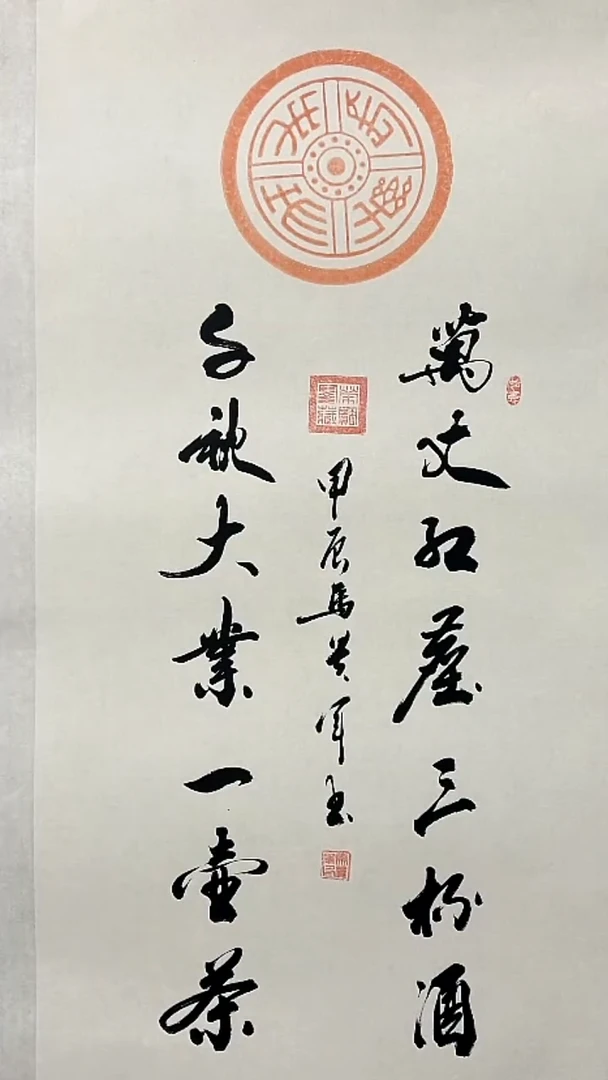 萬丈紅塵三杯酒
千秋大業一壺茶
甲辰馬英军书